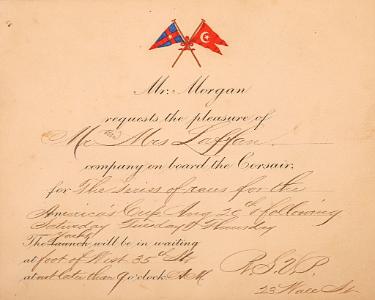 Mr. Morgan
requests the pleasure of
Mr. and Mrs Laffan
company on board the Corsair,
for The Series of races for the
America's Cup Aug 20th & following
Saturday Tuesday & Thursday
The Launch will be in waiting
at foot of West 35th St.
at not later than 9 o'clock A.M.
R.S.V.P.
23 Wall St.